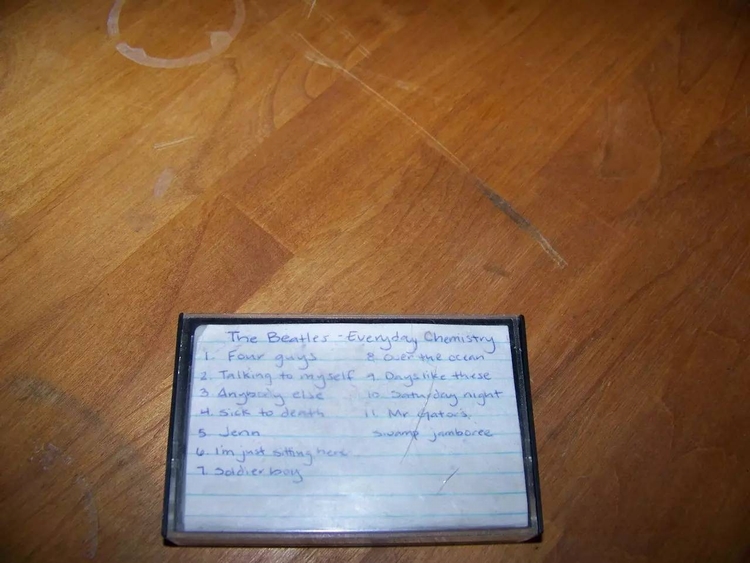 The Beatles - Everyday Chemistry
1. Four guys
2. Talking to myself
3. Anybody else
4. Sick to death
5. Jenn
6. I'm just sitting here
7. Soldier boy
8. Over the ocean
9. Days like these
10. Saturday night
11. Mr Gator's
swamp jamboree